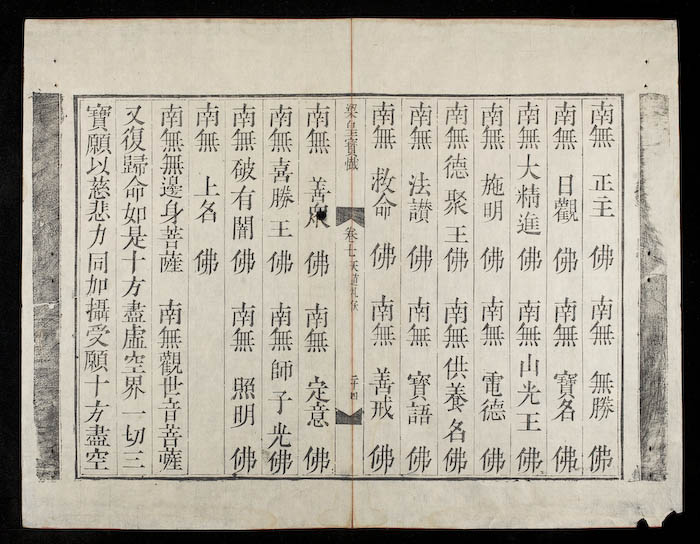 南無 正主 佛 南無 無勝 佛
南無 日觀 佛 南無 寶名 佛
南無大精進 佛 南無 山光王 佛
南無 施明 佛 南無 電德 佛
南無德聚王 佛 南無 供養名 佛
南無 法讃 佛 南無 寶語 佛
南無 救命 佛 南無 善戒 佛
梁皇寶懺
南無 善眾 佛 南無 定意 佛
南無喜勝王 佛 南無 師子光 佛
南無破有闇 佛 南無 照明 佛
南無 上名 佛
南無無邊身菩薩 南無觀世音菩薩
又復歸命如是十方盡虛空界一切三
寶願以慈悲力同加攝受願十方盡空